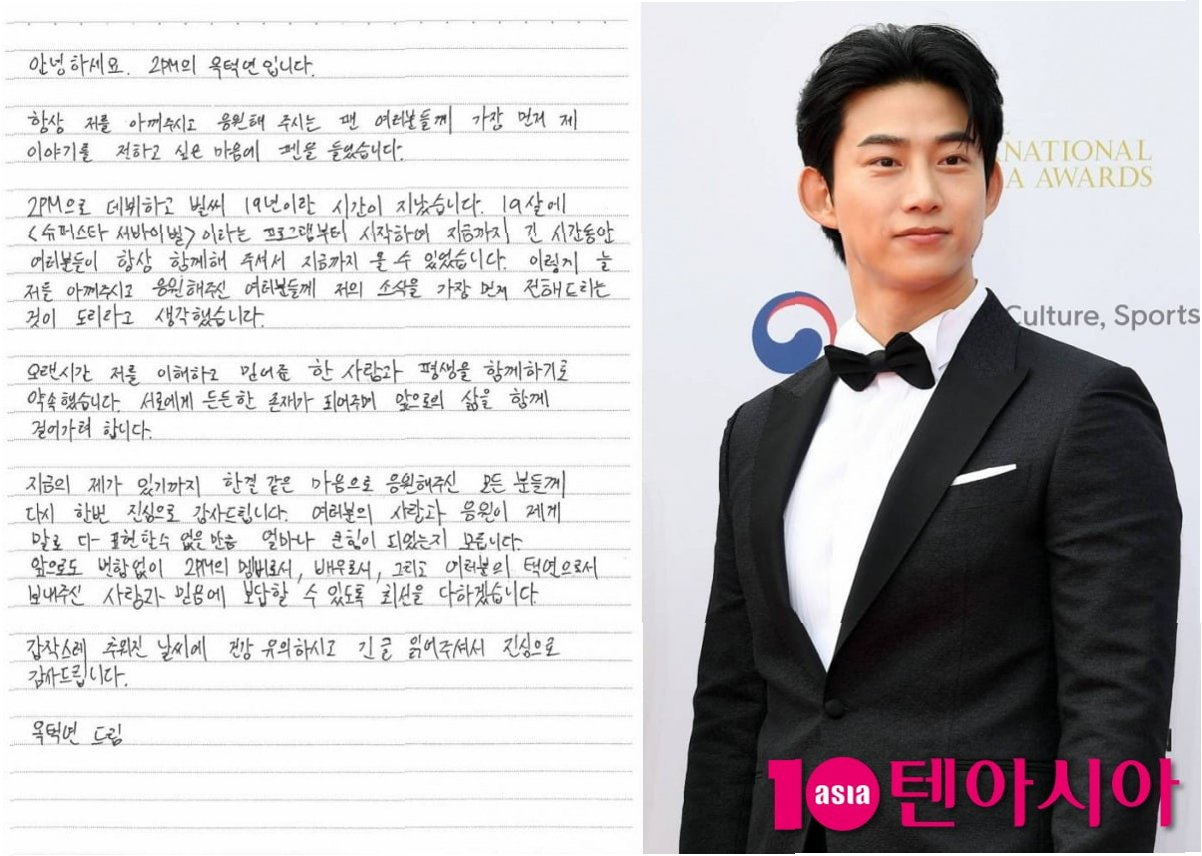 안녕하세요. 2PM의 옥택연입니다.
항상 저를 아껴주시고 응원해 주시는 팬 여러분들께 가장 먼저 제
이야기를 전하고 싶은 마음에 펜을 들었습니다.
2PM으로 데뷔하고 벌써 19년이란 시간이 지났습니다. 19살에
<슈퍼스타 서바이벌>이라는 프로그램부터 시작하여 지금까지 긴 시간동안
여러분들이 항상 함께해 주셔서 지금까지 올 수 있었습니다. 이렇게 늘
저를 아껴주시고 응원해주신 여러분들께 저의 소식을 가장 먼저 전해드리는
것이 도리라고 생각했습니다.
오랜시간 저를 이해하고 믿어준 한 사람과 평생을 함께하기로
약속했습니다. 서로에게 든든한 존재가 되어주며 앞으로의 삶을 함께
걸어가려 합니다.
지금의 제가 있기까지 한결 같은 마음으로 응원해주신 모든 분들께
다시 한번 진심으로 감사드립니다. 여러분의 사랑과 응원이 제게
말로 다 표현할수 없을만큼 얼마나 큰힘이 되었는지 모릅니다.
앞으로도 변함없이 2PM의 멤버로서, 배우로서, 그리고 여러분의 택연으로서
보내주신 사랑과 믿음에 보답할 수 있도록 최선을 다하겠습니다.
갑작스레 추워진 날씨에 건강 유의하시고 긴 글 읽어주셔서 진심으로
감사드립니다.
옥택연 드림
NATIONAL
A AWARDS
Culture, Sports
10 asia 텐아시아